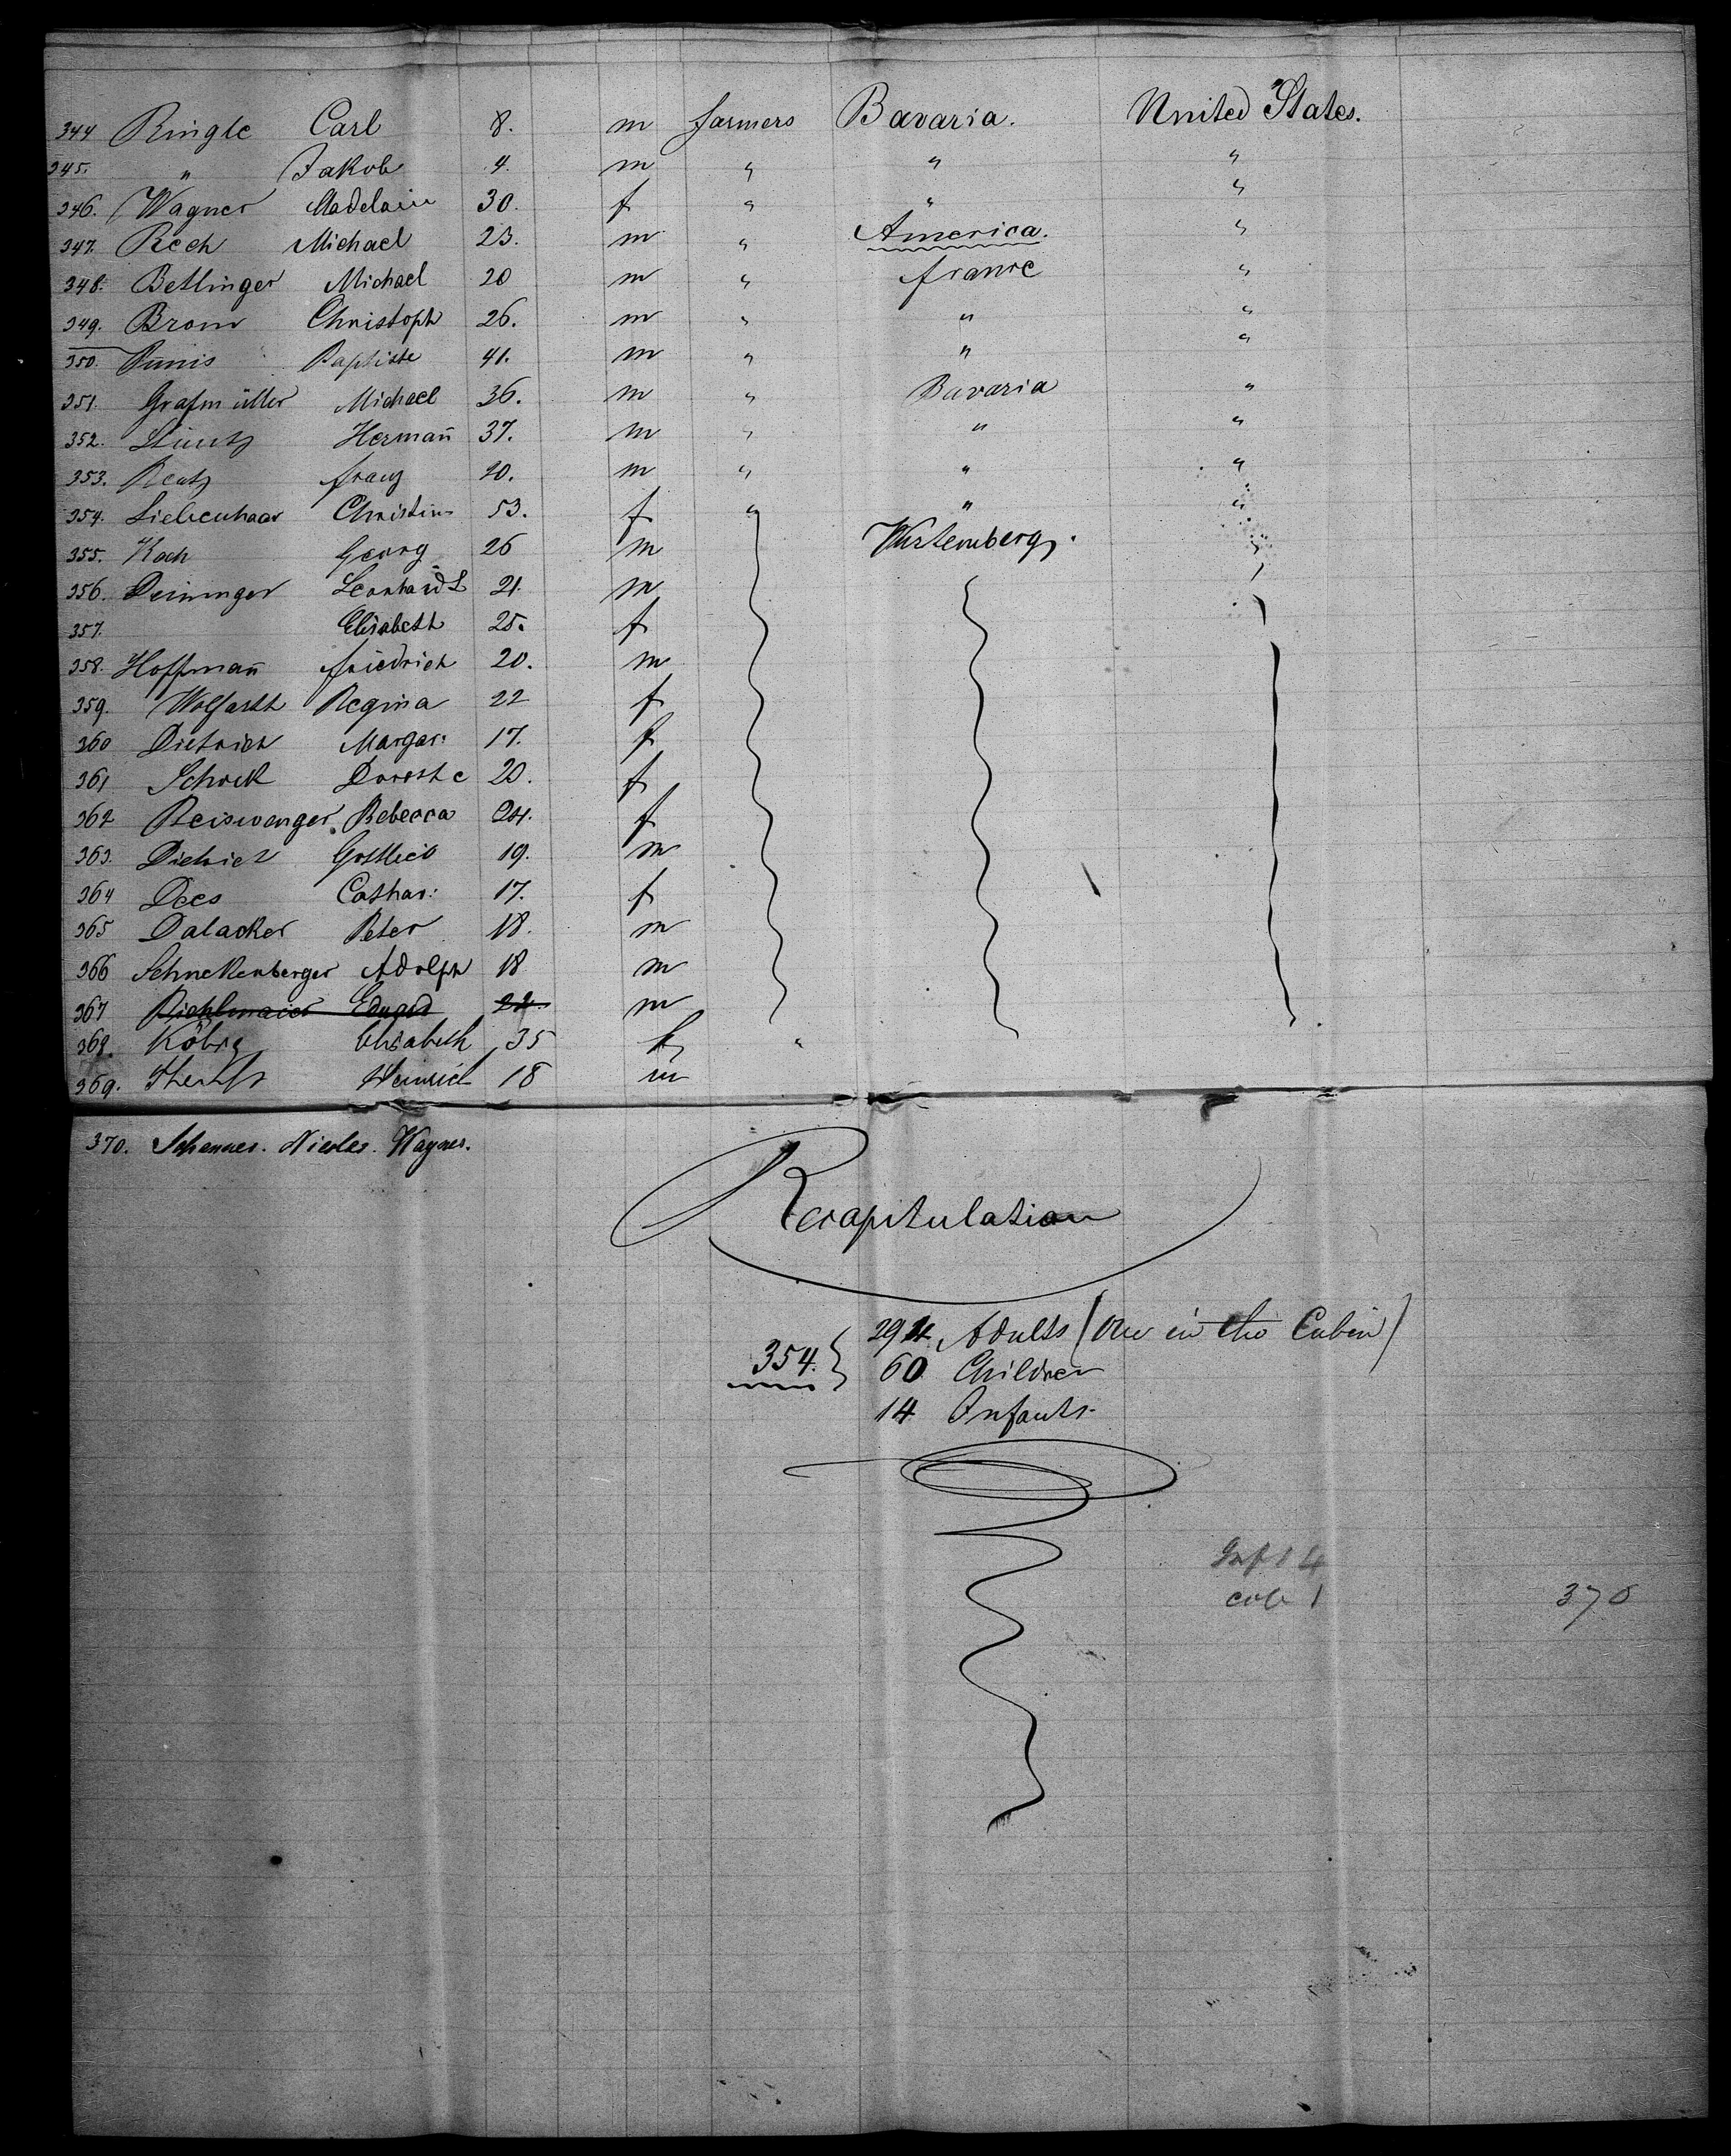 344 Ringle Carl 8. m farmers Bavaria. United States.
345. " Jakob 4. m " " "
346. Wagner Madelain 30. f " " "
347. Rech Michael 23. m " America. "
348. Betlinger Michael 20 m " france "
349. Brom Christoph 26. m " " "
350. Baptiste 41. m " " "
351. Grafmüller Michael 36. m " Bavaria "
352. Hermañ 37. m " " "
353. Rentz franz 20. m " " "
354. Liebenhaar Christin 53. f " " "
355. Koch Georg 26 m Wurtemberg.
356. Deininger Leonhardt 21. m
357. Elisabeth 25. f
358. Hoffmañ friedrich 20. m
359. Wolfarth Regina 22 f
360 Dietrich Margar: 17. f
361 Schock Dorothe 20. f
362 Reiswenger Rebecca 24. f
363. Gottlieb 19. m
364 Dees Cathar: 17. f
365 Dalacker Peter 18. m
366 Schneckenberger Adolph 18 m
367 Eduard 22 m
368. Köbrg Elisabeth 35 f "
369. Heinrich 18 m
370. Wagner.
Recapitulation
294 Adults (One in the Cabin)
354. } 60 Children
14 Infants.
Inf 14
cab 1 370